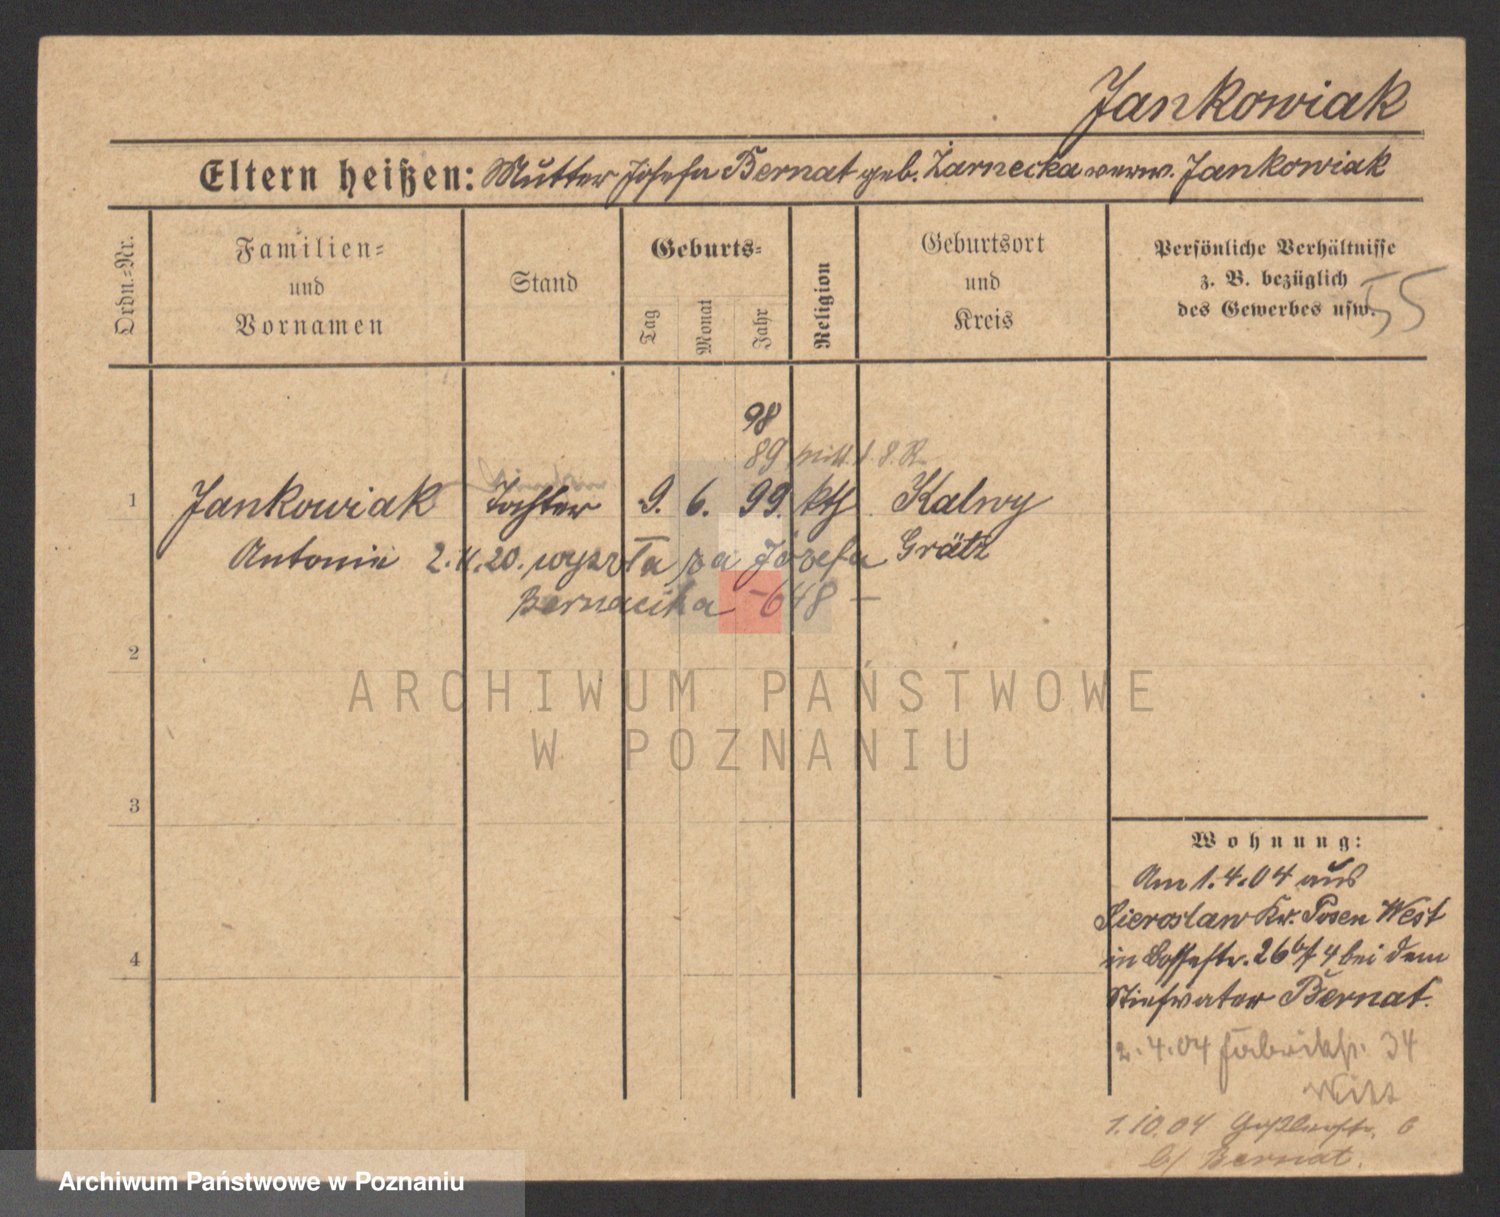 Jankowiak
Eltern heißen: Mutter Josefa Bernat geb. Żarnecka verw. Jankowiak
Ordn.-Nr.
Familien-
und
Vornamen
Stand
Geburts-
Tag
Monat
Jahr
Religion
Geburtsort
und
Kreis
Persönliche Verhältnisse
z. B. bezüglich
des Gewerbes usw.
55
98
89
1 Jankowiak Tochter 9. 6. 99. kth Kalwy
Antonie 2.11.20. wyszła za Józefa Grätz
Bernacika -648-
2
ARCHIWUM PAŃSTWOWE
W POZNANIU
3
4
Wohnung:
Am 1.4.04 aus
Sieroslaw Kr. Posen West
in 26 4 bei dem
Stiefvater Bernat.
2.4.04 Fabrikstr. 34
1.10.04 6
b/ Bernat.
Archiwum Państwowe w Poznaniu